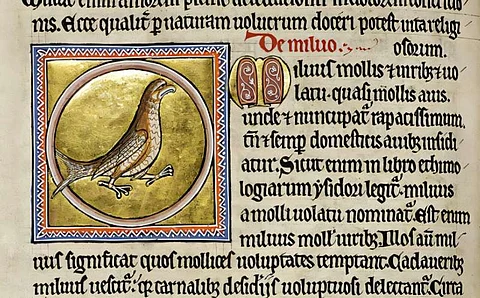 nis. Ecce qualit̅ p naturam uolucrum doceri potest uita religi
De miluo. osorum.
Miluus mollis ⁊ uiribꝫ ⁊ uo
latu. quasi mollis auis.
unde ⁊ nuncupat᷑. rapacissimum.
tn̄ ⁊ semp domesticis auibꝫ insidi
atur. Sicut enim in libro ethimo
logiarum ysidori legit᷑. miluus
a molli uolatu nominat᷑. Est enim
miluus moll' uiribꝫ. Illos aū mil
uus significat quos mollices uoluptates temptant. Cadaueribꝫ
miluus uescit᷑. qꝫ carnalibꝫ desidꝭijs uoluptuosi delectant᷑. Circa